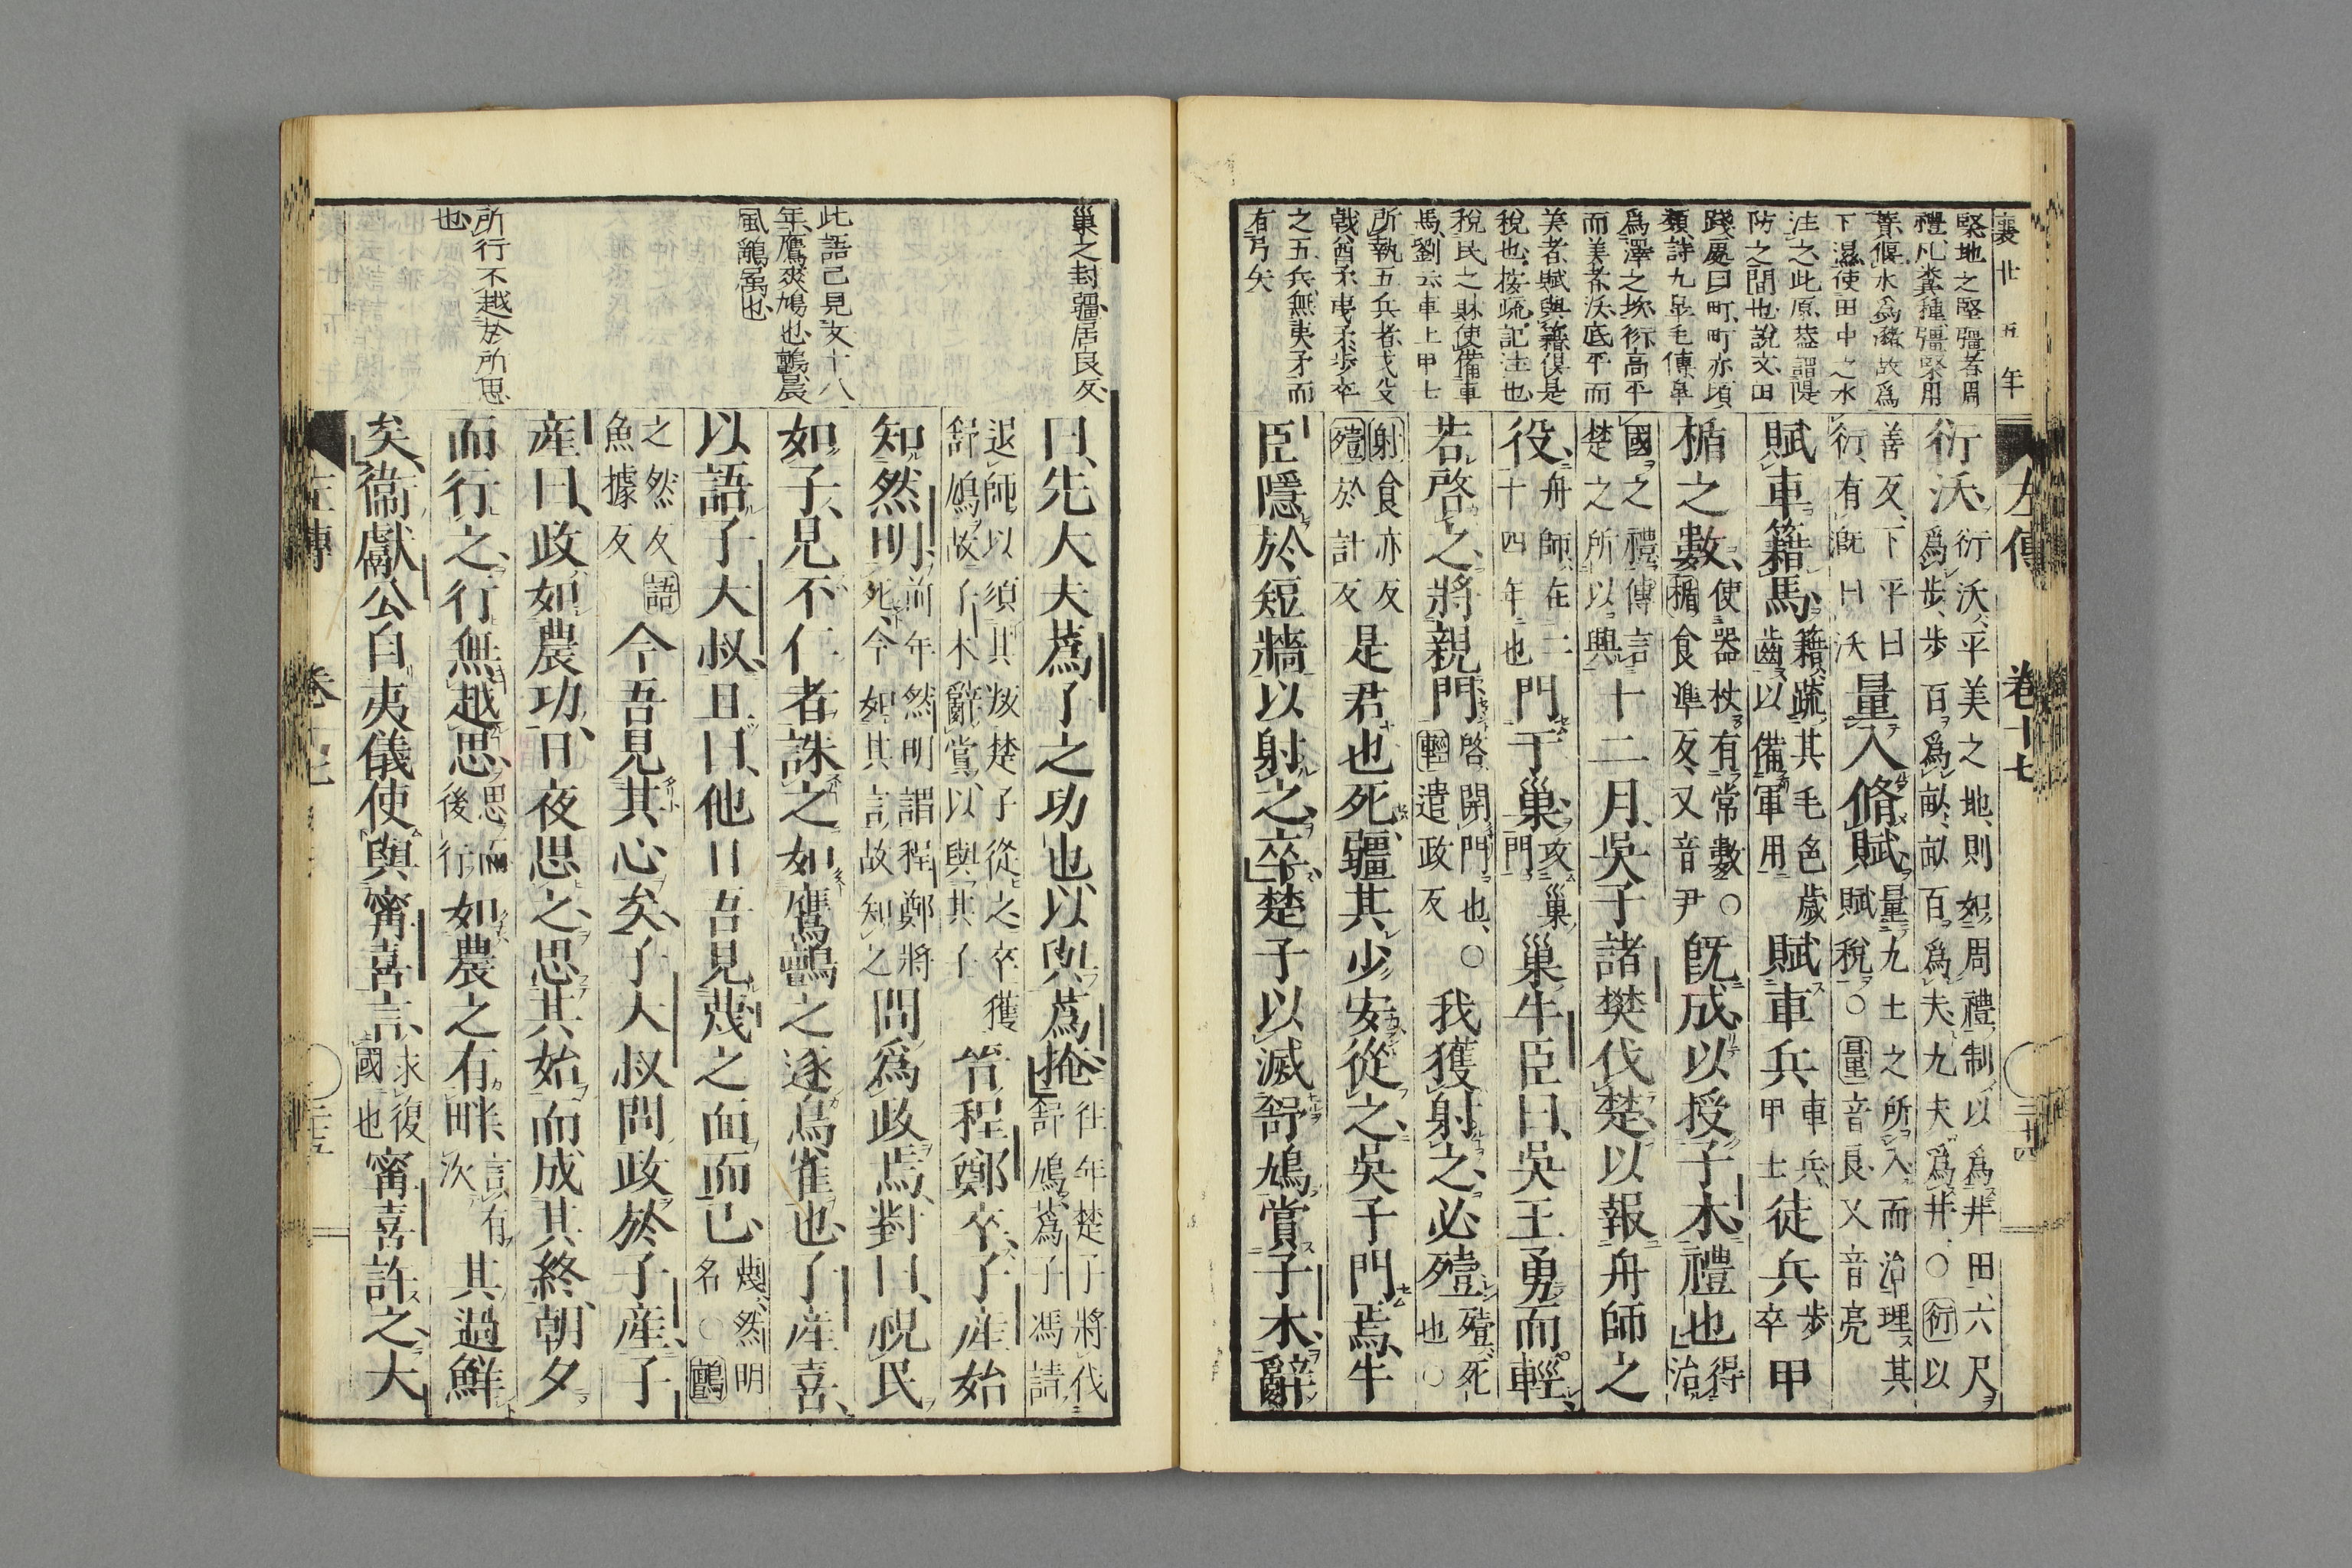 襄廿五年
堅地之堅彊者周
禮凡糞種彊㯺用
蕡偃水爲瀦故爲
下濕使田中之水
注之此原蓋謂隄
防之間也說文田
踐處曰町町亦頃
類詩九皐毛傳皐
爲澤之坎衍高平
而美者沃底平而
美者賦與籍俱是
稅也按疏記注也
稅民之財使備車
馬劉云車上甲士
所執五兵者戈殳
戟酋矛夷矛步卒
之五兵無夷矛而
有弓矢
左傳 卷十七 二十四
衍沃衍沃平美之地則如周禮制以爲井田六尺爲步步百爲畝畝百爲夫九夫爲井○衍以
善反下平曰衍有漑曰沃量入脩賦量九土之所入而治理其賦稅○量音良又音亮
賦車籍馬籍疏其毛色歲齒以備軍用賦車兵車兵甲士徒兵步卒甲
楯之數使器杖有常數○楯食準反又音尹旣成以授子木禮也得治
國之禮傳言楚之所以興十二月吳子諸樊伐楚以報舟師之
役舟師在二十四年也門于巢攻巢門巢牛臣曰吳王勇而輕
若啓之將親門啓開門也○輕遣政反我獲射之必殪殪死也○
射食亦反殪於計反是君也死疆其少安從之吳子門焉牛
臣隱於短牆以射之卒楚子以滅舒鳩賞子木辭
巢之封疆居良反
此語已見文十八
年鷹爽鳩也鸇晨
風鷂屬也
所行不越於所思
也
曰先大夫蔿子之功也以與蔿掩往年楚子將伐舒鳩蔿子馮請
退師以須其叛楚子從之卒獲舒鳩故子木辭賞以與其子晉程鄭卒子產始
知然明前年然明謂程鄭將死今如其言故知之問爲政焉對曰視民
如子見不仁者誅之如鷹鸇之逐鳥雀也子產喜
以語子大叔且曰他日吾見蔑之面而已蔑然明名○鸇
之然反語魚據反今吾見其心矣子大叔問政於子產子
產曰政如農功日夜思之思其始而成其終朝夕
而行之行無越思思而後行如農之有畔言有次其過鮮
矣衞獻公自夷儀使與甯喜言求復國也甯喜許之大
左傳 卷十七 二十五